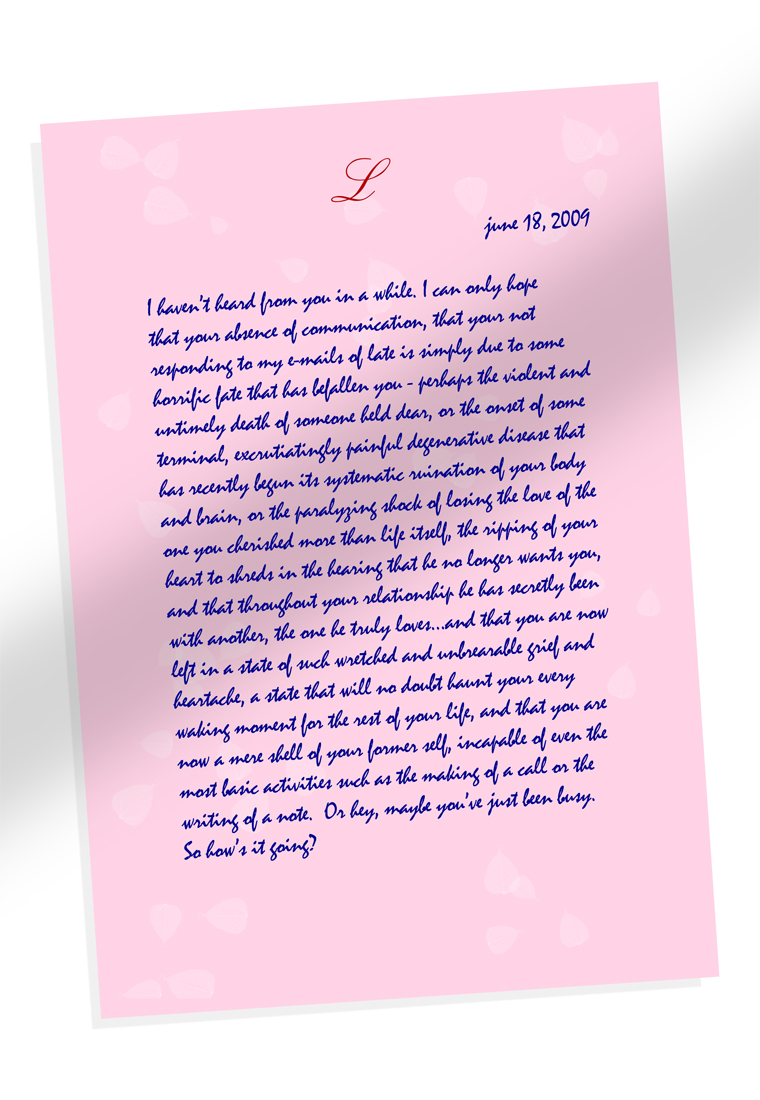 L
june 18, 2009
I haven't heard from you in a while. I can only hope
that your absence of communication, that your not
responding to my e-mails of late is simply due to some
horrific fate that has befallen you - perhaps the violent and
untimely death of someone held dear, or the onset of some
terminal, excrutiatingly painful degenerative disease that
has recently begun its systematic ruination of your body
and brain, or the paralyzing shock of losing the love of the
one you cherished more than life itself, the ripping of your
heart to shreds in the hearing that he no longer wants you,
and that throughout your relationship he has secretly been
with another, the one he truly loves...and that you are now
left in a state of such wretched and unbrearable grief and
heartache, a state that will no doubt haunt your every
waking moment for the rest of your life, and that you are
now a mere shell of your former self, incapable of even the
most basic activities such as the making of a call or the
writing of a note. Or hey, maybe you've just been busy.
So how's it going?